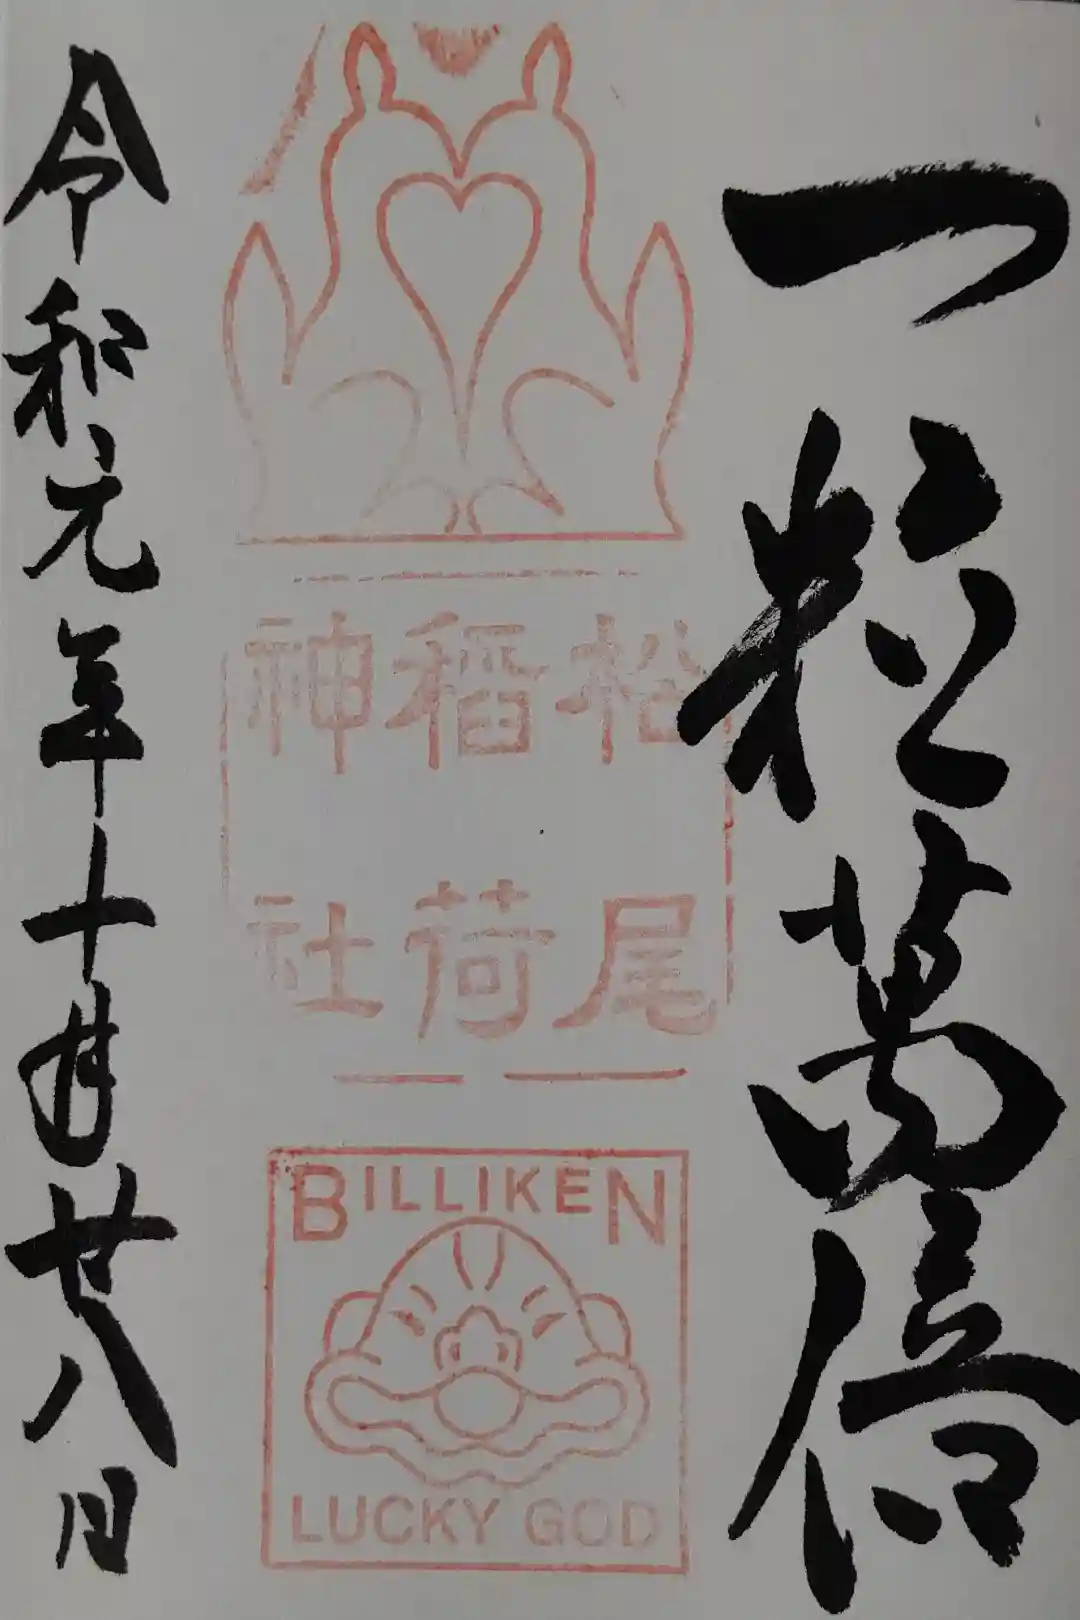 一粒萬倍
松尾
稲荷
神社
BILLIKEN
LUCKY GOD
令和元年十月廿八日